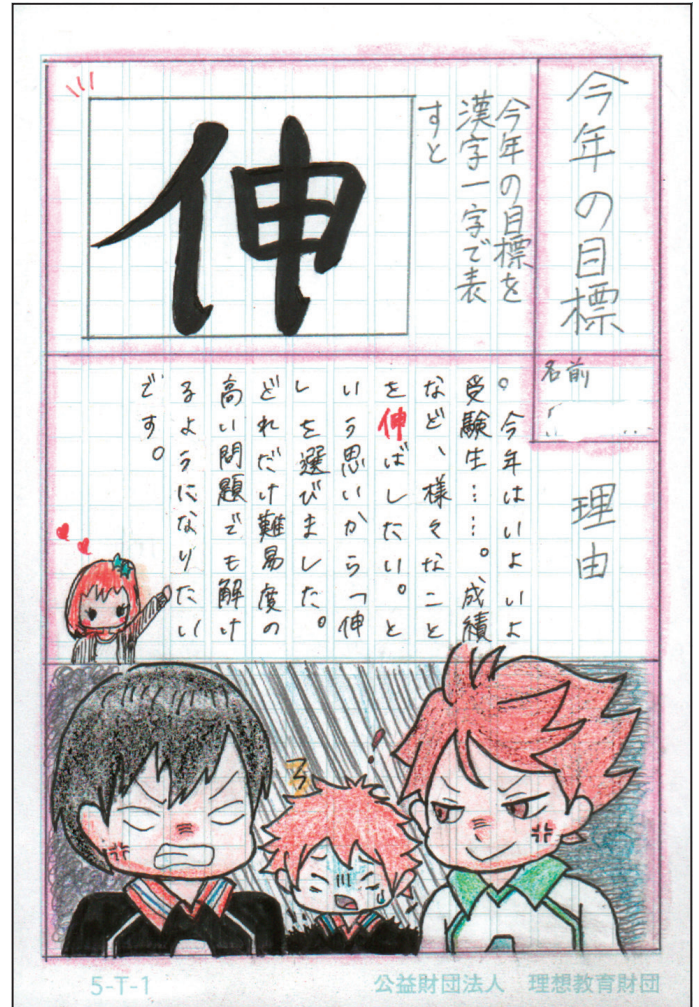 今年の目標
名前
今年の目標を
漢字一字で表
すと
伸
理由
。今年はいよいよ
受験生……。成績
など、様々なこと
を伸ばしたい。と
いう思いから「伸
」を選びました。
どれだけ難易度の
高い問題でも解け
るようになりたい
です。
5-T-1
公益財団法人 理想教育財団